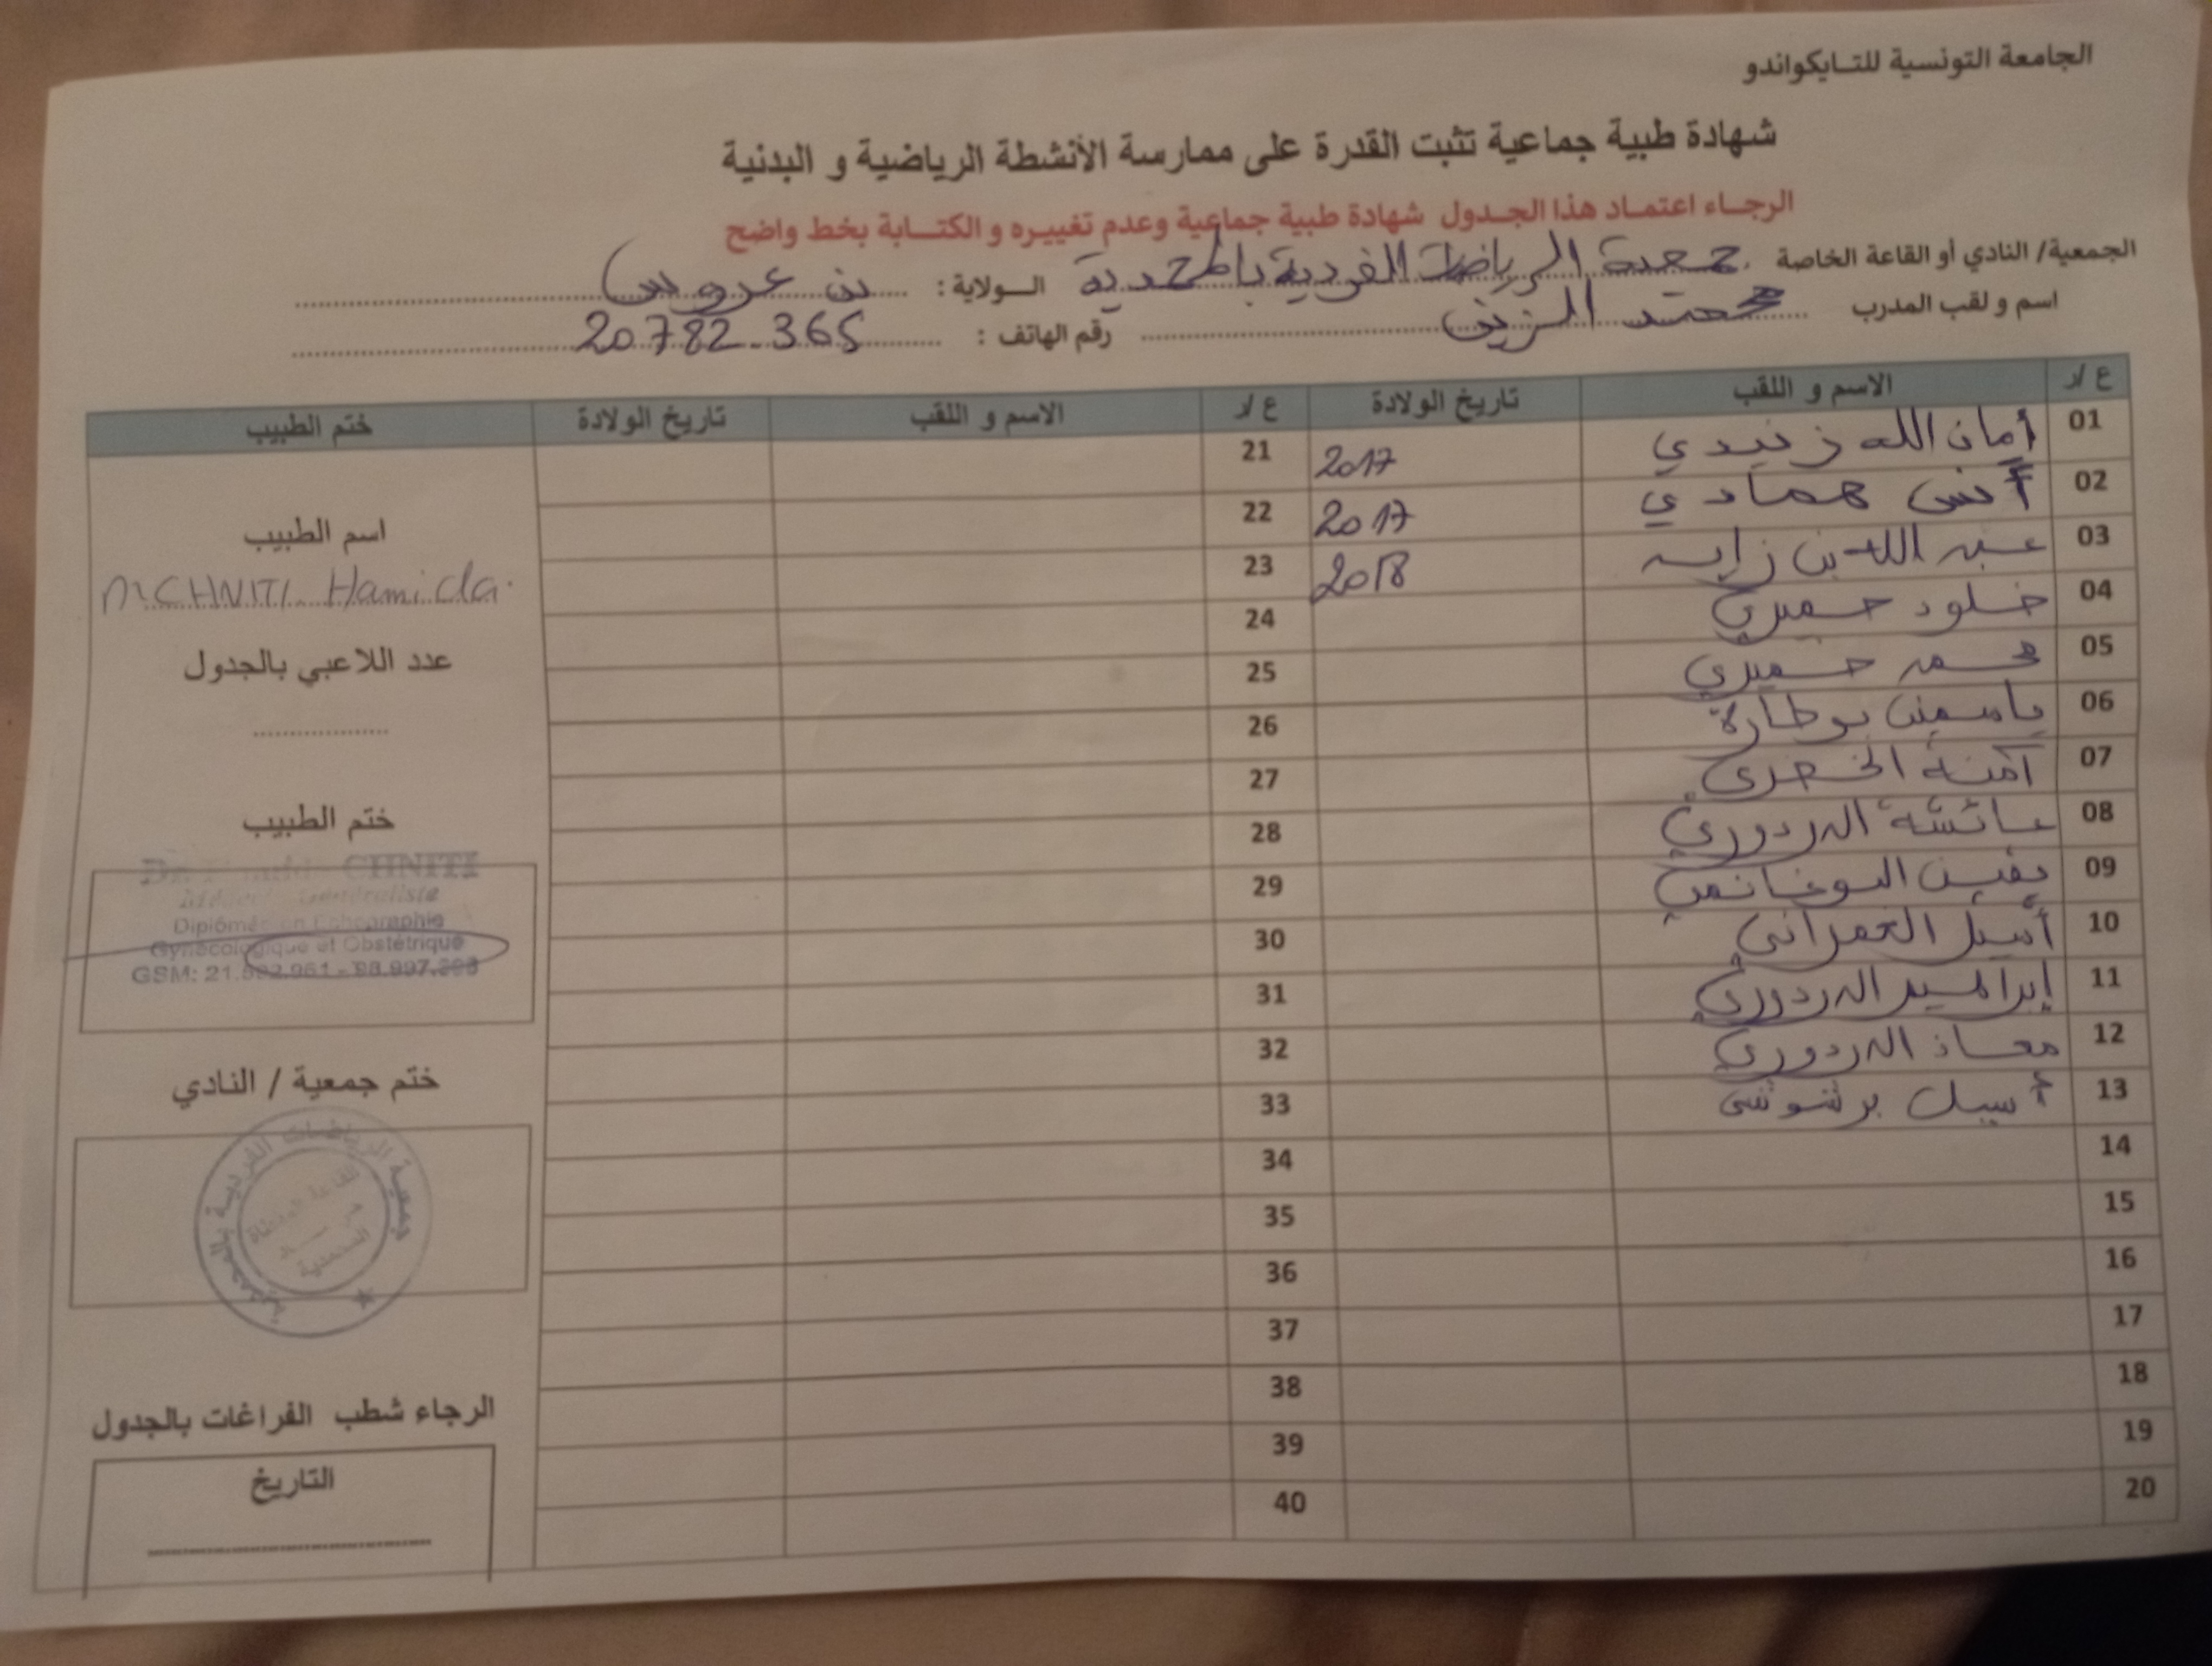 الجامعة التونسية للتـايكواندو
شهادة طبية جماعية تثبت القدرة على ممارسة الأنشطة الرياضية و البدنية
الرجـاء اعتمـاد هذا الجـدول شهادة طبية جماعية وعدم تغييـره و الكتـابة بخط واضح
الجمعية/ النادي أو القاعة الخاصة جمعية الرياضات الفردية بالمحمدية الـولاية : بن عروس
اسم و لقب المدرب محمد الزين رقم الهاتف : 20782.365
ع/ر الاسم و اللقب تاريخ الولادة ع/ر الاسم و اللقب تاريخ الولادة ختم الطبيب
01 أمان الله زنيدي 2017 21
02 أنس همادي 2017 22
03 عبد الله بن زايد 2018 23
04 خلود حميري 24
05 محمد حميري 25
06 ياسمين بوطارة 26
07 آمنة 27
08 عائشة الدردوري 28
09 يقين البوغانمي 29
10 أسيل العمراني 30
11 إبراهيم الدردوري 31
12 معاذ الدردوري 32
13 أسيل برشوشي 33
14 34
15 35
16 36
17 37
18 38
19 39
20 40
اسم الطبيب
Dr CHNITI Hamida
عدد اللاعبي بالجدول
ختم الطبيب
Dr CHNITI
Médecin Généraliste
Diplômée en Echographie
Gynécologique et Obstétrique
GSM: 21.
ختم جمعية / النادي
جمعية الرياضات الفردية بالمحمدية
الرجاء شطب الفراغات بالجدول
التاريخ